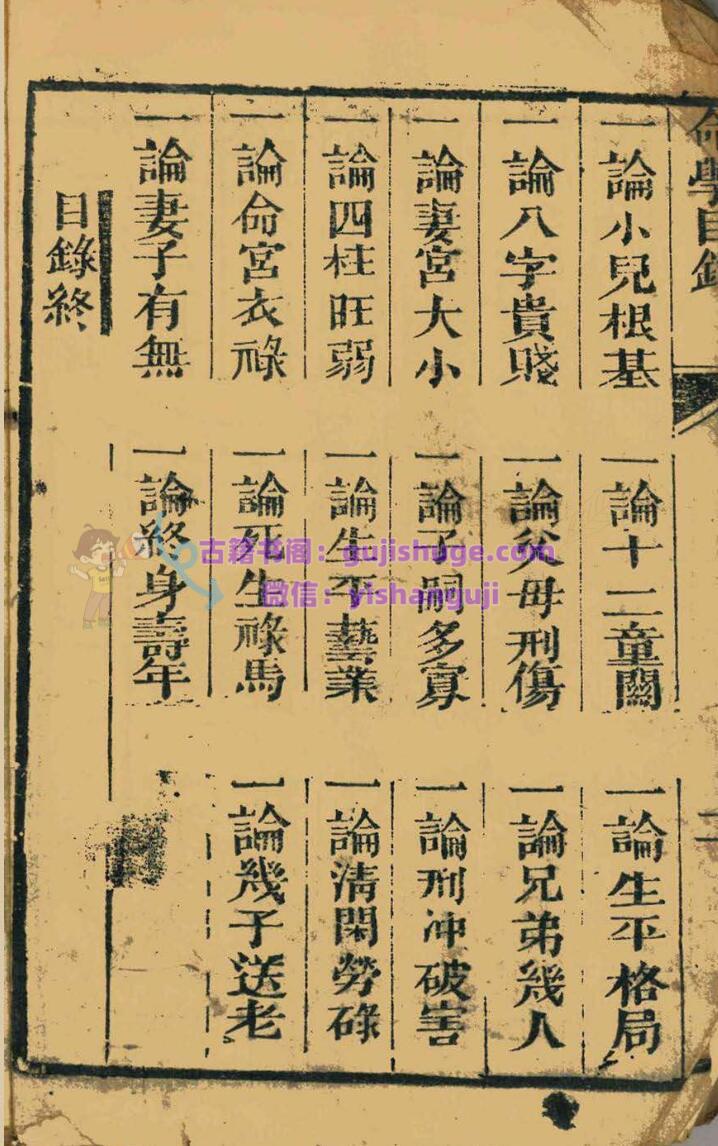 命學目錄
一論小兒根基 一論十二童關 一論生平格局
一論八字貴賤 一論父母刑傷 一論兄弟幾人
一論妻宮大小 一論子嗣多寡 一論刑冲破害
一論四柱旺弱 一論生平藝業 一論清閑勞碌
一論命宮衣祿 一論死生祿馬 一論幾子送老
一論妻子有無 一論終身壽年
目錄終
二
古籍书阁：gujishuge.com
微信：yishanguji